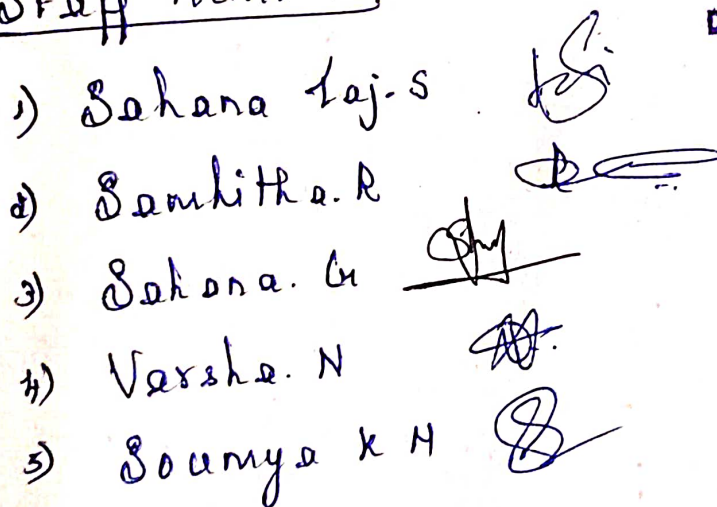 1) Sahana Taj.S
2) Samhitha.R
3) Sahana. G
4) Varsha. N
5) Soumya K M